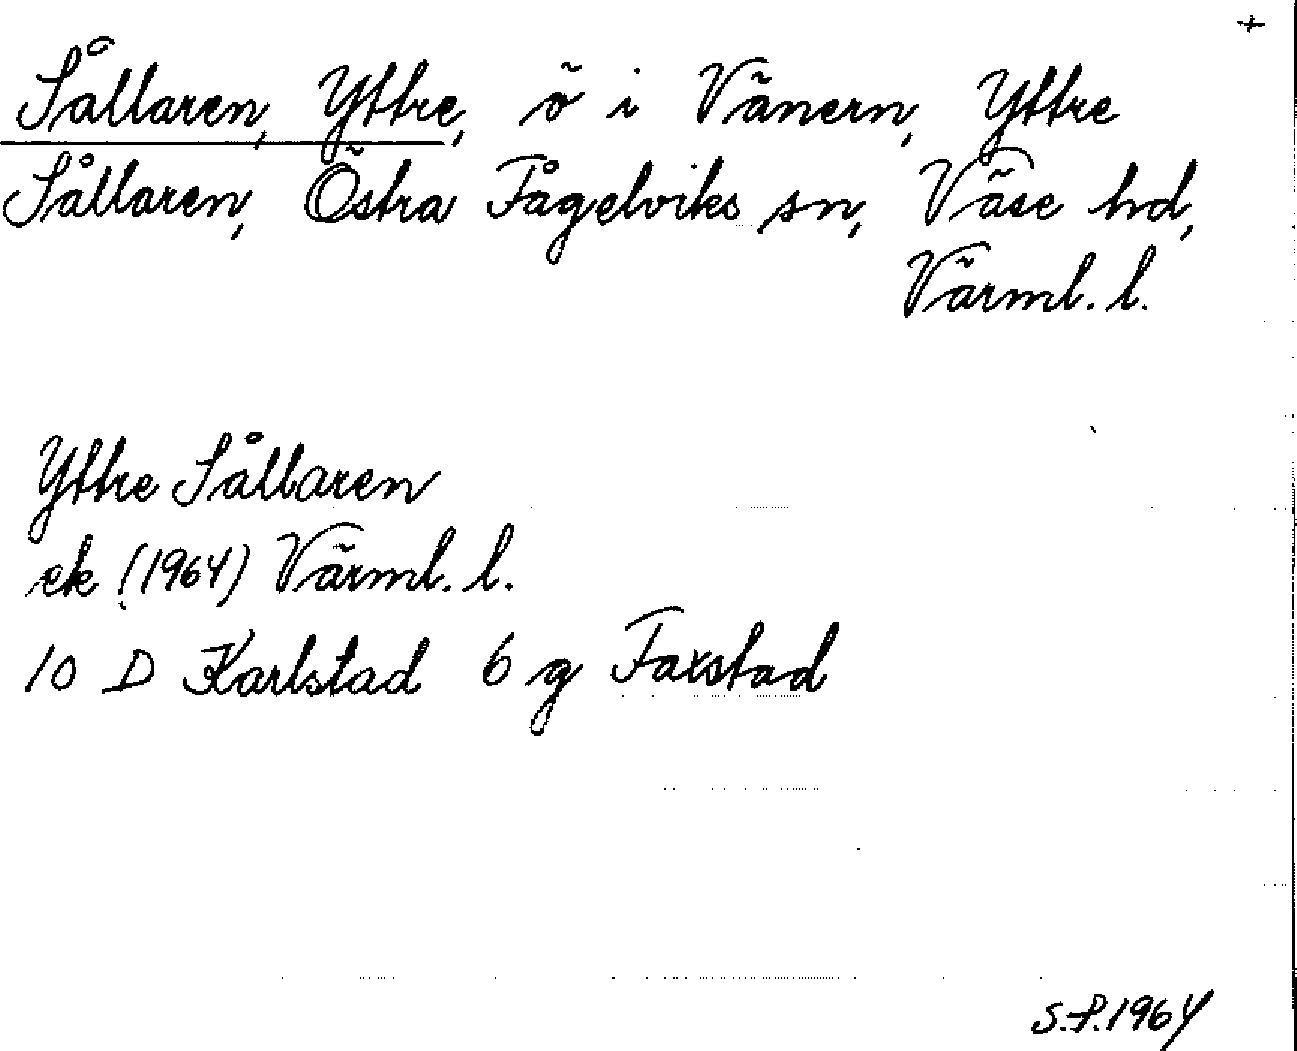 +
Sållaren, Yttre, ö i Vänern, Yttre
Sållaren, Östra Fågelviks sn, Väse hd,
Värml. l.
Yttre Sållaren
ek (1964) Värml. l.
10 D Karlstad 6 g Faxstad
S.P.1964